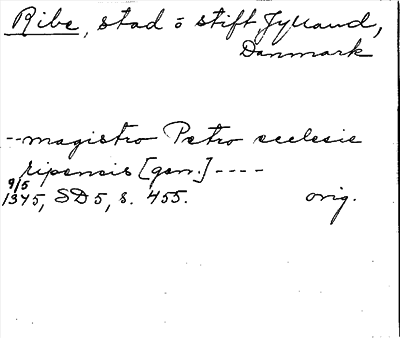 Ribe, stad o stift, Jylland,
Danmark
--magistro Petro ecclesie
ripensis [gen.]----
9/5
1345, SD5, s. 455. orig.